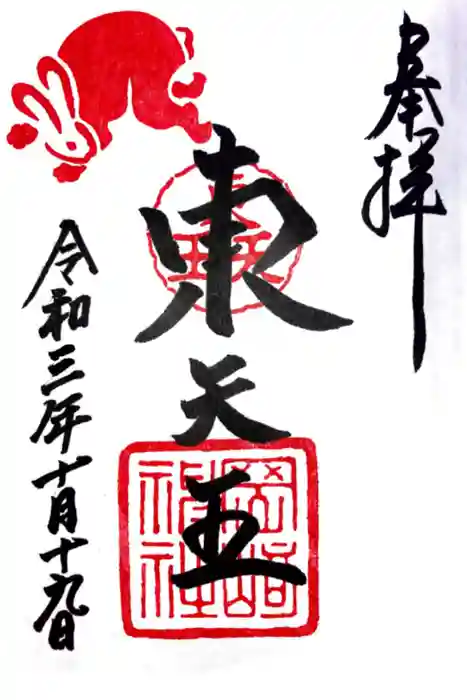 奉拝
東天王
岡崎神社
令和三年十月十九日